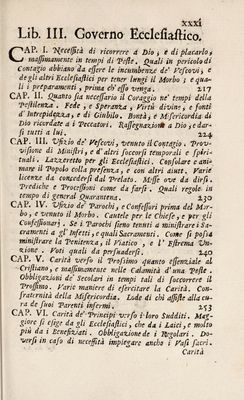 xxxi
Lib. III. Governo Ecclesiastico.
CAP. I. Necessità di ricorrere a Dio, e di placarlo,
massimamente in tempi di Peste. Quali in pericolo di
Contagio abbiano da essere le incumbenze de' Vescovi, e
degli altri Ecclesiastici per tener lungi il Morbo; e qua-
li i preparamenti, prima ch'esso venga. 217
CAP. II. Quanto sia necessario il Coraggio ne' tempi della
Pestilenza. Fede, e Speranza, Virtù divine, e fonti
d'Intrepidezza, e di Giubilo. Bontà, e Misericordia di
Dio ricordate a i Peccatori. Rassegnazione a Dio, e dar-
si tutti a lui. 224
CAP. III. Ufizio de' Vescovi, venuto il Contagio. Prov-
visione di Ministri, e d'altri soccorsi temporali e spiri-
tuali. Lazzeretto per gli Ecclesiastici. Consolare e ani-
mare il Popolo colla presenza, e con altri aiuti. Varie
licenze da concedersi dal Prelato. Messe ove da dirsi.
Prediche e Processioni come da farsi. Quali regole in
tempo di general Quarantena. 230
CAP. IV. Ufizio de' Parochi, e Confessori prima del Mor-
bo, e venuto il morbo. Cautele per le Chiese, e per gli
Confessionarj. Se i Parochi sieno tenuti a ministrare i Sa-
cramenti a gl' Infetti, e quali Sacramenti. Come si possa
ministrare la Penitenza, il Viatico, e l' Estrema Un-
zione. Voti quali da persuadersi. 240
CAP. V. Carità verso il Prossimo quanto essenziale al
Cristiano, e massimamente nelle Calamità d'una Peste.
Obbligazioni de' Secolari in tempi tali di soccorrere il
Prossimo. Varie maniere di esercitare la Carità. Con-
fraternità della Misericordia. Lode di chi assiste alla cu-
ra de suoi Parenti infermi. 253
CAP. VI. Carità de' Principi verso i loro Sudditi. Mag-
giore si esige da gli Ecclesiastici, che da i Laici, e molto
più da i Beneficiati. Obbligazione de i Regolari. Do-
versi in caso di necessità impiegare anche i Vasi sacri.
Carità